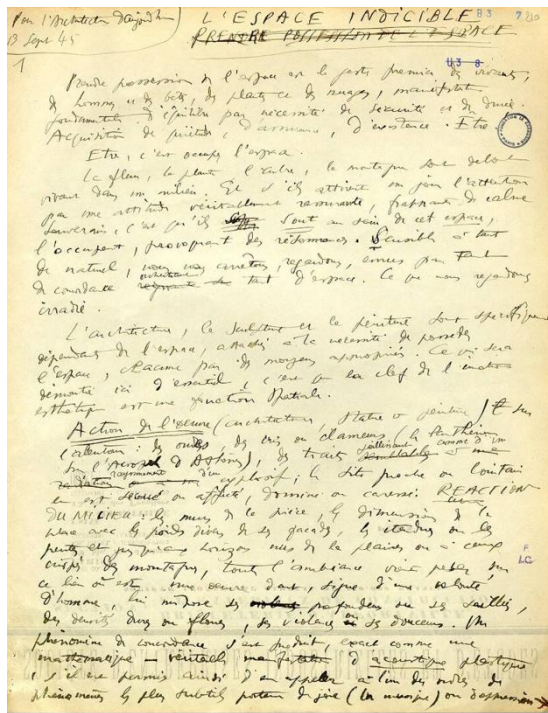 Pour l'Architecture d'Aujourd'hui
13 Sept 45
L'ESPACE INDICIBLE
PRENDRE POSSESSION DE L'ESPACE
1
Prendre possession de l'espace est le geste premier des vivants,
des hommes et des bêtes, des plantes et des nuages, manifestation
fondamentale d'équilibre et de durée.
Être
Être, c'est occuper l'espace.
La fleur, la plante, l'arbre, la montagne sont debout
vivant dans un milieu. Et s'ils attirent un jour l'attention
par une attitude véritablement rassurante,
souveraine, c'est qu'ils sont au sein de cet espace,
l'occupent, provoquant des résonances. Sensible à tant
de naturel, nous nous arrêtons, regardons, émus par tant
de concordance tant d'espace. Ce que nous regardons
irradie.
L'architecture, la sculpture et la peinture sont spécifiquement
dépendantes de l'espace, à la nécessité de
l'espace, chacune par des moyens appropriés. Ce qui sera
démontré ici d'essentiel, c'est que la clef de l'émotion
esthétique est une fonction spatiale.
Action de l'œuvre (architecture statue ou peinture) sur
l'alentour : des ondes, des cris ou clameurs (le Parthénon
sur l'Acropole d'Athènes), des traits jaillissant comme d'un
rayonnement d'un explosif; le site proche ou lointain
en est secoué ou affecté, dominé ou caressé. REACTION
DU MILIEU : les murs de la pièce, les dimensions de la
place avec les poids divers de ses façades, les étendues ou les
pentes et jusqu'aux horizons nus de la plaine ou à ceux
crispés des montagnes, toute l'ambiance vient peser sur
ce lieu où est une œuvre d'art, signe d'une volonté
d'homme, lui impose ses profondeurs ou ses saillies,
ses densités dures ou floues, ses violences ou ses douceurs. Un
phénomène de concordance s'est produit, exact comme une
mathématique - véritable manifestation d'acoustique plastique
; s'il est permis ainsi d'en appeler à l'un des ordres de
phénomènes les plus subtils porteur de joie (la musique) ou d'oppression
FLC